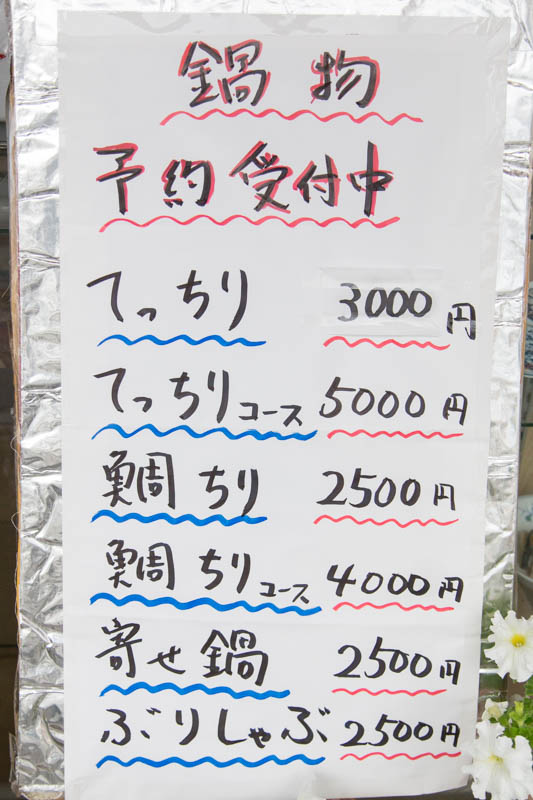 鍋物
予約受付中
てっちり 3000円
てっちりコース 5000円
鯛ちり 2500円
鯛ちりコース 4000円
寄せ鍋 2500円
ぶりしゃぶ 2500円